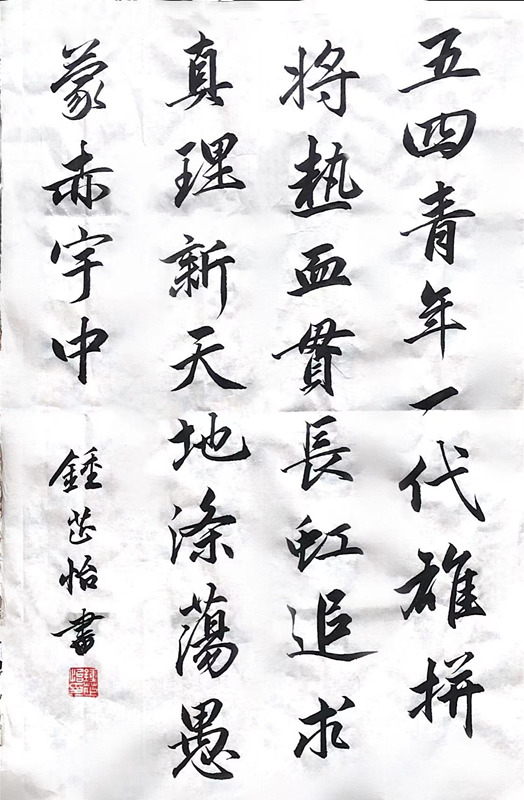 五四青年一代雄拼
將熱血貫長虹追求
真理新天地滌蕩愚
蒙赤宇中
鍾芷怡書